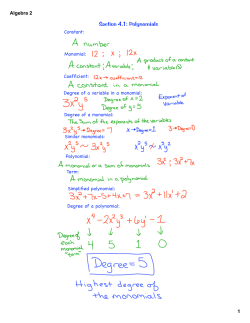 Algebra 2
Section 4.1: Polynomials
Constant:
A number
Monomial: 12 ; x ; 12x
A constant; A variable; A product of a constant & variable(s)
Coefficient: 12x → coefficient=12
A constant in a monomial
Degree of a variable in a monomial:
3x²y⁵ Degree of x=2 Exponent of
Degree of y=5 Variable
Degree of a monomial:
The Sum of the exponents of the variables
3x²y⁵→Degree=7 x→Degree=1 3→Degree=0
Similar monomials:
x²y³ ~ 3x²y³ x²y³ ≁ x³y²
Polynomial:
A monomial or a sum of monomials 3x²; 3x²+7x
Term:
A monomial in a polynomial
Simplified polynomial:
3x²+7x-5+4x+7 = 3x²+11x+2
Degree of a polynomial:
x⁴-2x²y³+6y-1
Degree of each monomial "term"
4 5 1 0
Degree=5
Highest degree of
the monomials
1